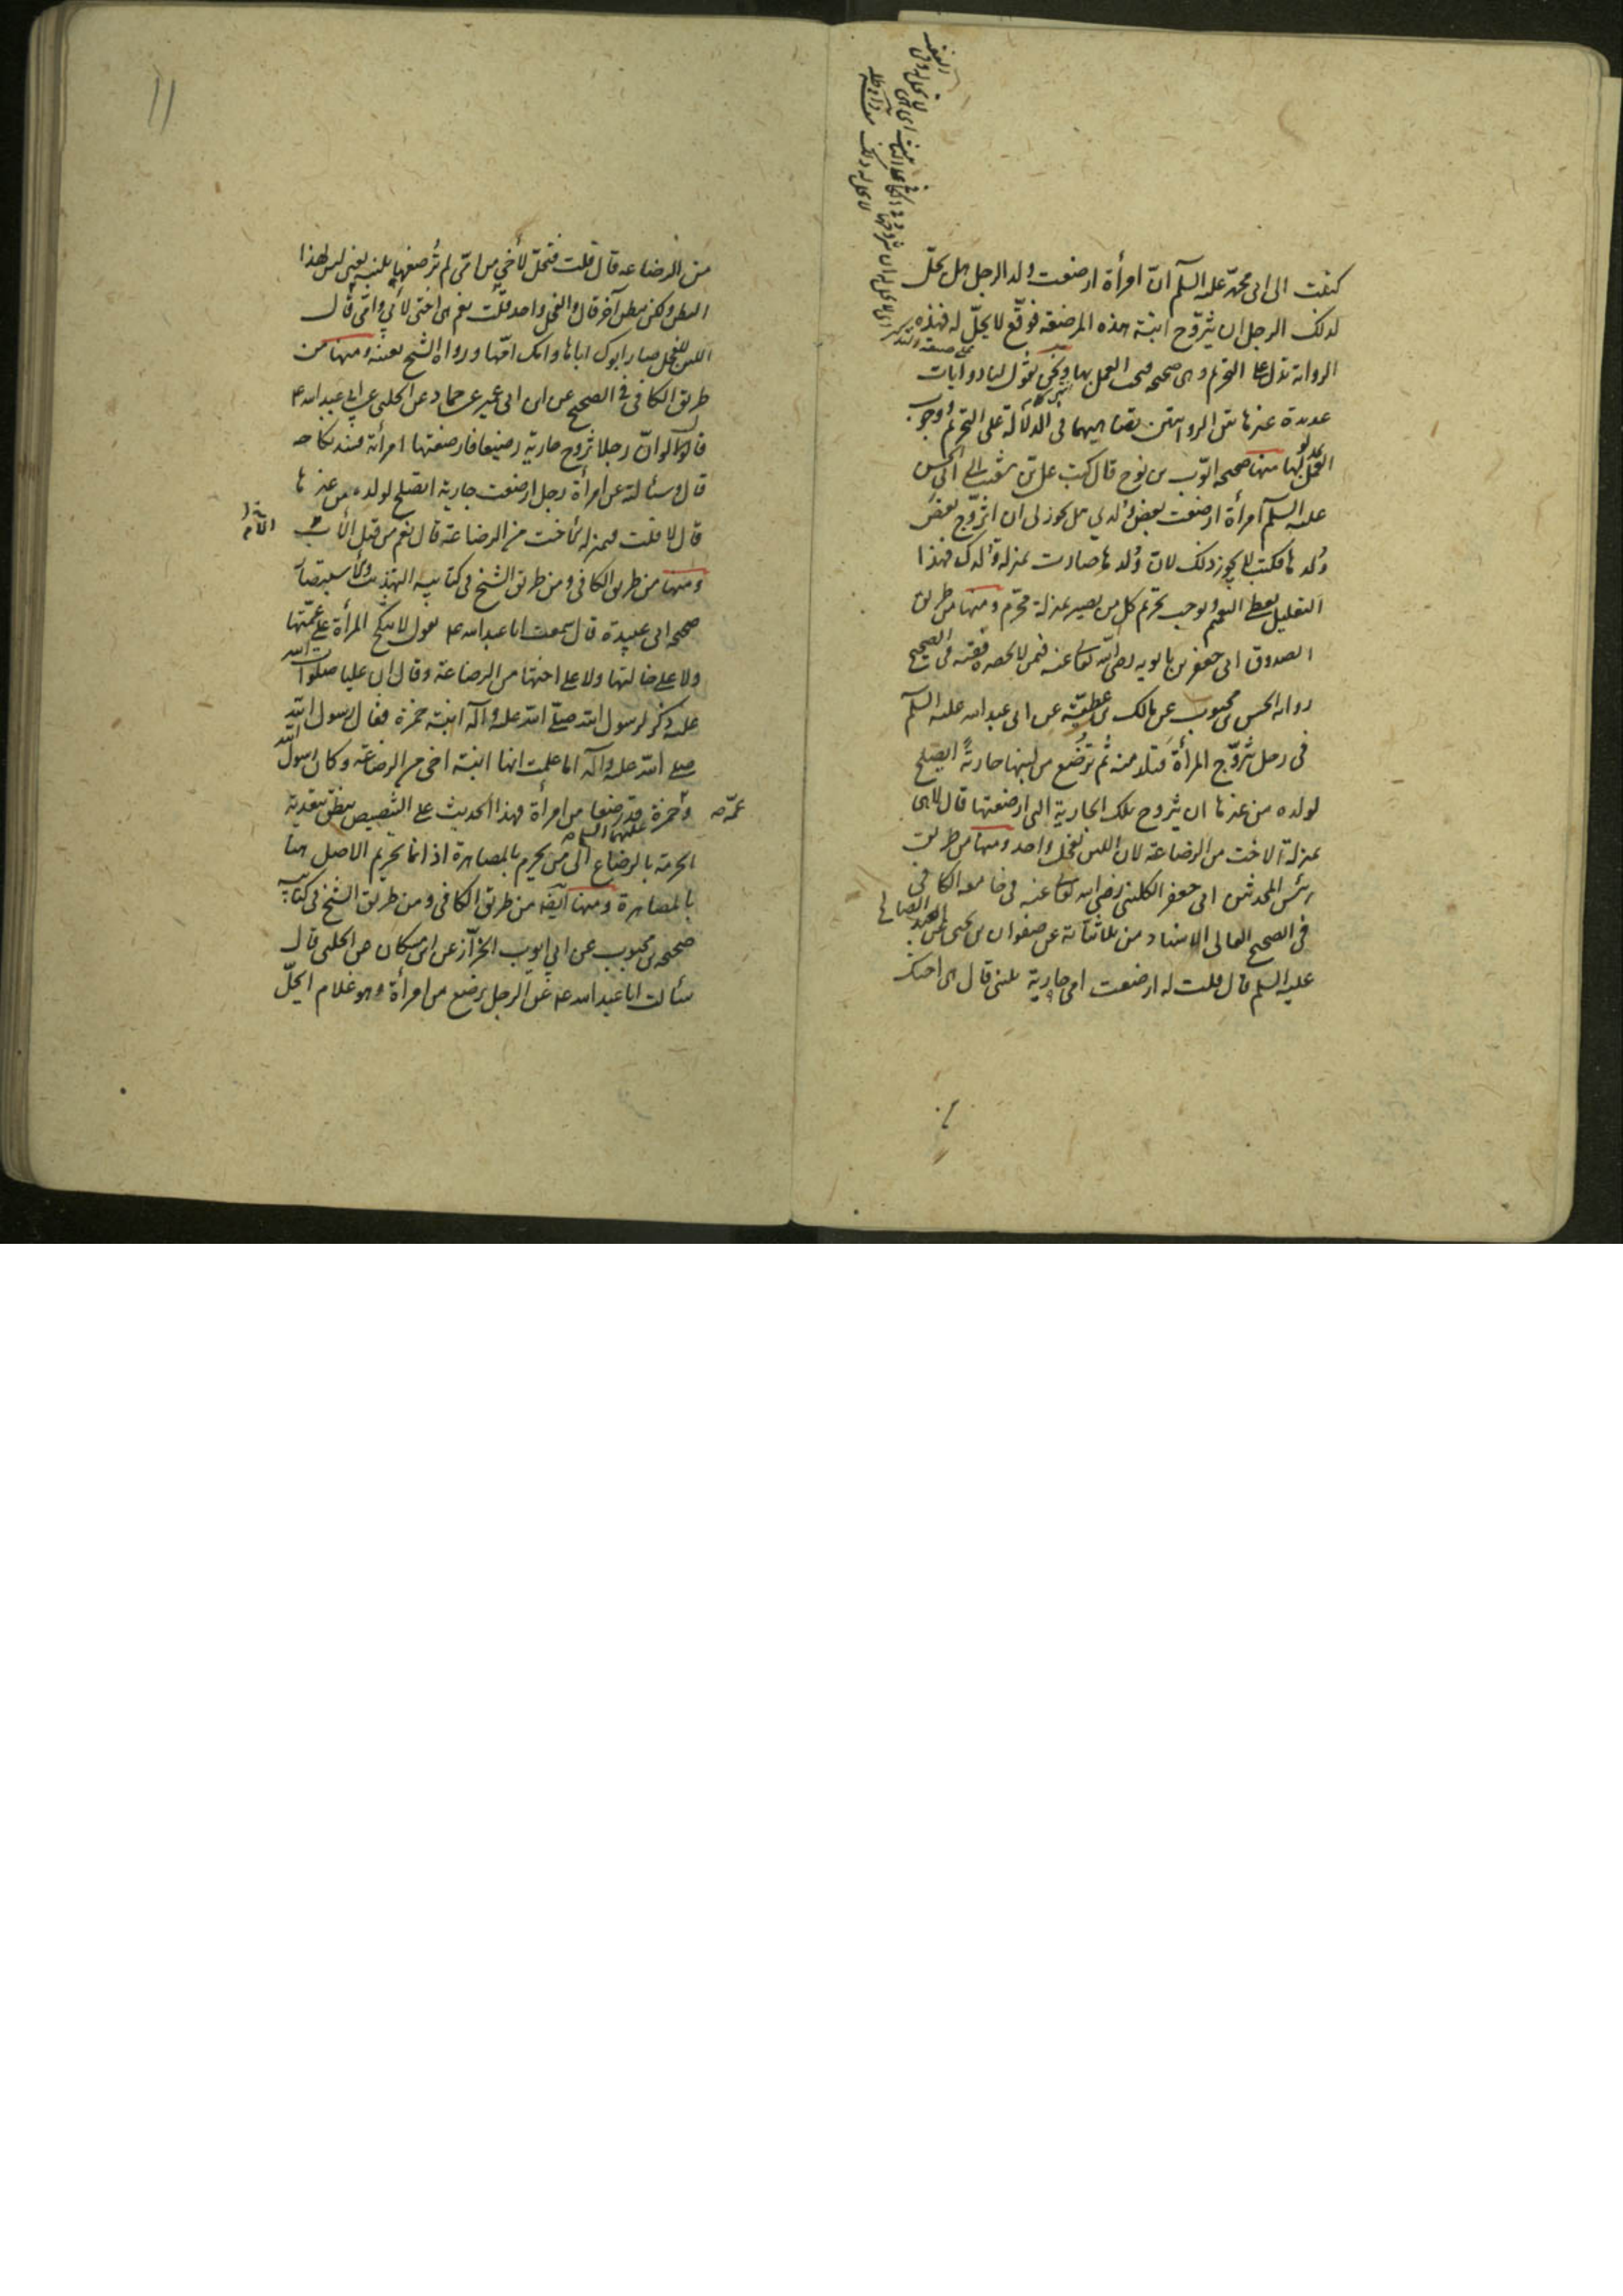 كتبت الى ابى محمد عليه السلم انّ امرأة ارضعت ولد الرجل هل يحلّ
لذلك الرجل ان يتزوّج ابنة هذه المرضعه فوقّع لا يحلّ له فهذه
الرواية تدل على التحريم وهى صحيحه فيجب العمل بها ونحن نقول لنا روايات
عديدة غيرها تين الروايتين يقتا فى الدلالة على التحريم ووجوب
العمل بها منها صحيحه ايوب بن نوح قال كتب على بن شعيب الى ابى الحسن
عليه السلم امرأة ارضعت بعض ولدى هل يجوز لى ان اتزوّج بعض
ولدها فكتب لا يجوز ذلك لان ولدها صارت بمنزلة ولدك فهذا
التعليل يعطى التعميم ويوجب تحريم كل من يصير بمنزلة محرّم ومنها من طريق
الصدوق ابى جعفر بن بابويه رضى الله تعالى عنه فيمن لا يحضره فقيه فى الصحيح
رواية الحسن بن محبوب عن مالك بن عطيّة عن ابى عبد الله عليه السلم
فى رجل يتزوّج المرأة فتلد منه ثم ترضع من لبنها جارية ايصلح
لولده من غيرها ان يتزوج تلك الجارية التى ارضعتها قال لا هى
بمنزلة الاخت من الرضاعة لان اللبن لفحل واحد ومنها من طريق
رئيس المحدثين ابى جعفر الكلينى رضى الله تعالى عنه فى جامعه الكافى
فى الصحيح العالى الاسناد من ثلاثياته عن صفوان بن يحيى عن العبد الصالح
عليه السلم قال قلت له ارضعت امى جارية بلبنى قال هى اختك
من الرضاعه قال قلت فتحلّ لأخى من امّى لم ترضعها بلبنه يعنى ليس لهذا
البطن ولكن ببطن آخر قال والفحل واحد قلت نعم هى اختى لأبى وامّى قال
اللبن للفحل صار ابوك اباها وامك امّها ورواه الشيخ بعينه ومنها من
طريق الكافى فى الصحيح عن ابن ابى عمير عن حماد عن الحلبى عن ابى عبد الله ع
قال لو انّ رجلا تزوج جارية رضيعا فارضعتها امرأته فسد نكاحه
قال وسألته عن امرأة رجل ارضعت جارية ايصلح لولده من غيرها
قال لا قلت فبمنزلة الأخت من الرضاعة قال نعم من قبل الأب
ومنها من طريق الكافى ومن طريق الشيخ فى كتابيه التهذيب والاستبصار
صحيحه ابى عبيدة قال سمعت ابا عبد الله ع يقول لا تنكح المرأة على عمّتها
ولا على خالتها ولا على اختها من الرضاعة وقال ان عليا صلوات الله
عليه ذكر لرسول الله صلّى الله عليه وآله ابنة حمزة فقال رسول الله
صلى الله عليه وآله اما علمت انها ابنة اخى من الرضاعة وكان رسول الله
وحمزة قد رضعا من امرأة فهذا الحديث على التنصيص ينطق بتعدية
عمّه
عليهما السلم
الحرمة بالرضاع الى من يحرم بالمصاهرة اذ انما تحريم الاصل هنا
بالمصاهرة ومنها ايضه من طريق الكافى ومن طريق الشيخ فى كتابيه
صحيحه بن محبوب عن ابى ايوب الخزّاز عن ابن مسكان عن الحلبى قال
سألت ابا عبد الله ع عن الرجل يرضع من امرأة وهو غلام ايحلّ